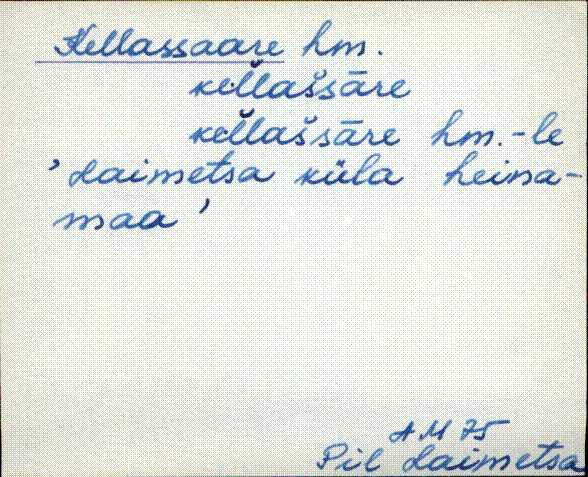 Kellassaare hm.
kel̆lašsāre
kel̆lašsāre hm.-le
'Laimetsa küla heina-
maa'
AM 75
Pil Laimetsa